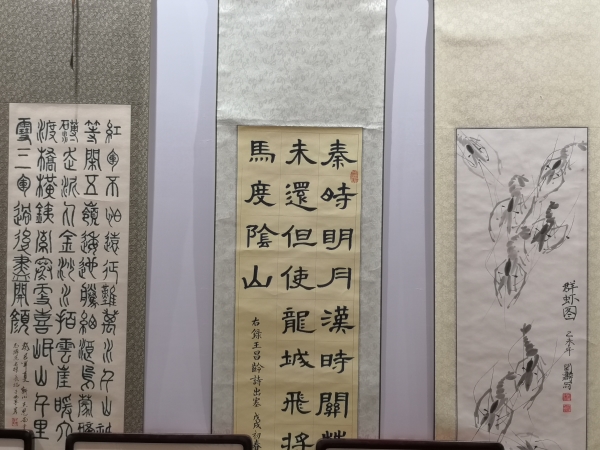 紅軍不怕遠征難萬水千山
等閑五嶺逶迤騰細浪烏蒙
磅礴走泥丸金沙水拍雲崖暖大
渡橋橫鐵索寒更喜岷山千里
雪三軍過後盡開顏
秦時明月漢時關
未還但使龍城飛將
馬度陰山
右錄王昌齡詩出塞 戊戌初春
群虾图
乙未年